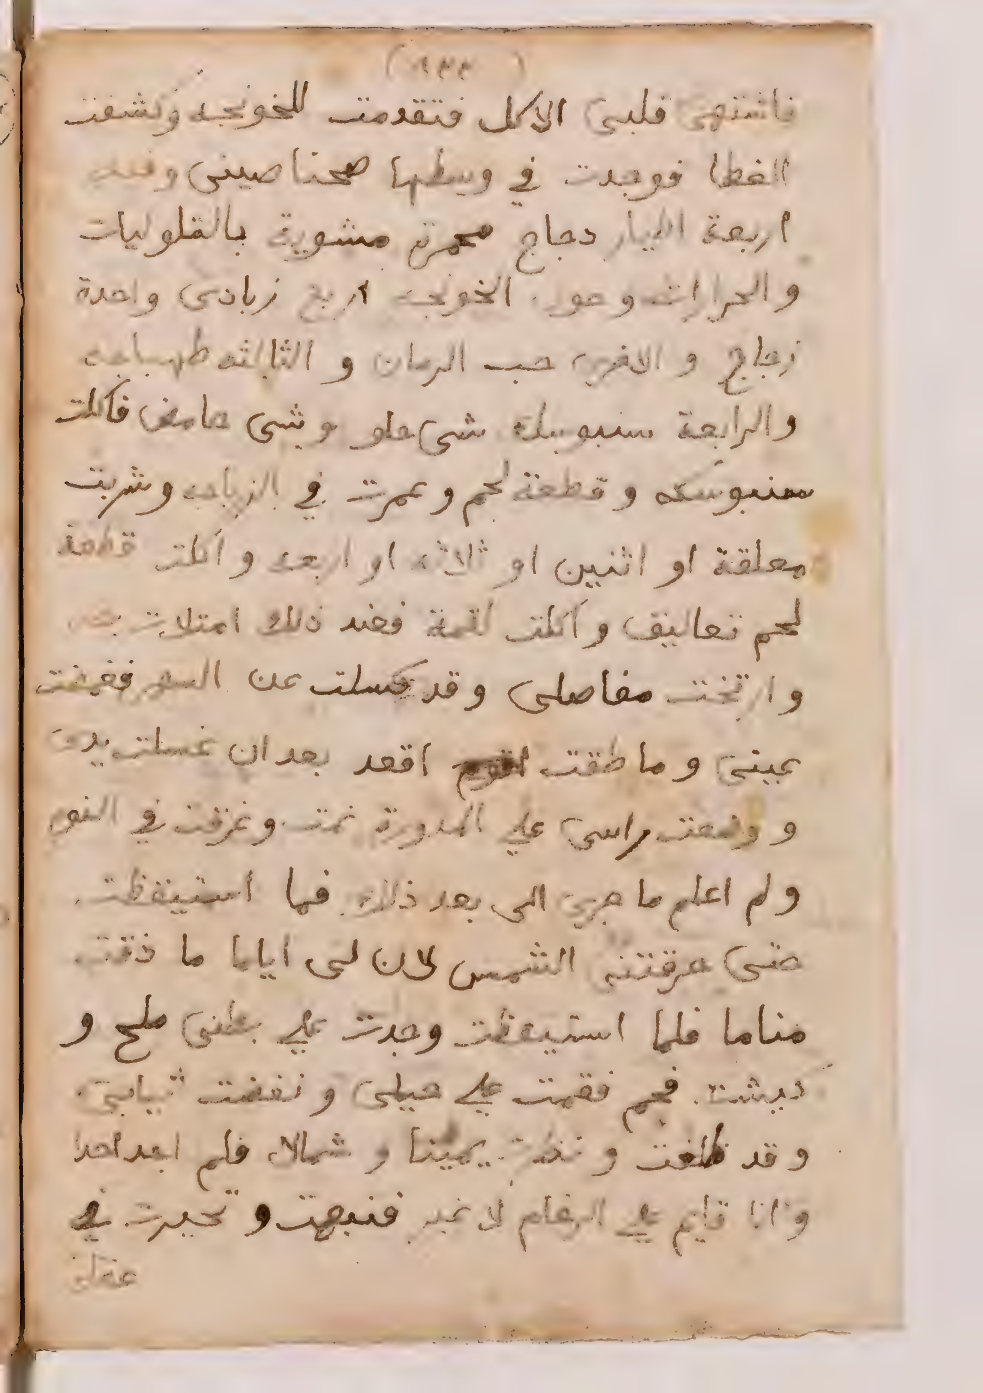 فاشتهى قلبى الاكل فتقدمت للخونجه وكشفت
الغطا فوجدت في وسطها صحنا صينى وفيه
اربعة اطيار دجاج محمرة مشوية بالقلوليات
و الحرارات وحول الخونجه اربع زبادى واحدة
زجاج و الاخرى حب الرمان و الثالثه طهباجه
والرابعة سنبوسك شى حلو وشى حامض فاكلت
سنبوسكه و قطعة لحم وعمرت في الزباجه وشربت
معلقة او اثنين او ثلاثه او اربعه و اكلت قطعة
لحم تعاليق و اكلت لقمة فعند ذلك امتلات
و ارتخت مفاصلى وقد كسلت عن السهر فغمضت
عينى و ما طقت اقعد بعد ان غسلت يدى
و وضعت راسى على المدورة نمت وغرقت في النوم
ولم اعلم ما جرى الى بعد ذلك فما استيقظت
حتى حرقتنى الشمس لان لى اياما ما ذقت
مناما فلما استيقظت وجدت على بطنى ملح و
كبشت فحم فقمت على حيلى و نفضت ثيابى
و قد و نظرت يمينا و شمالا فلم اجد احدا
و انا قايم على الرخام لا غير فنبهت و تحيرت في
عقلى